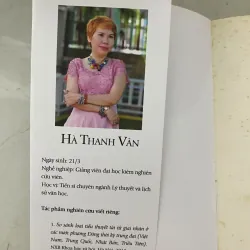 HÀ THANH VÂN
Ngày sinh: 21/3
Nghề nghiệp: Giảng viên đại học kiêm nghiên
cứu viên.
Học vị: Tiến sĩ chuyên ngành Lý thuyết và lịch
sử văn học.
Tác phẩm nghiên cứu viết riêng:
1. So sánh loại tiểu thuyết tài tử giai nhân ở
các nước phương Đông thời kỳ trung đại (Việt
Nam, Trung Quốc, Nhật Bản, Triều Tiên)
NXB Khoa học xã hội,